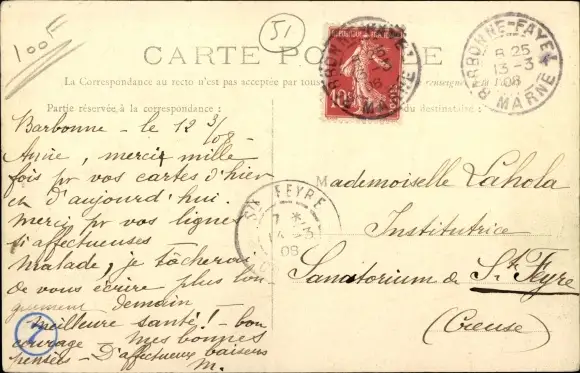 100 F
51
CARTE POSTALE
La Correspondance au recto n'est pas acceptée par tous
Partie réservée à la correspondance :
du destinataire :
10
BARBONNE-FAYEL
8 25
13 -3
08
MARNE
Barbonne - le 12 3/08 -
Amie, merci mille
fois pr vos cartes d'hier
et d'aujourd'hui.
Merci pr vos lignes
si affectueuses
Malade, je tâcherai
de vous écrire plus lon
guement demain -
Meilleure santé ! - bon
courage - Mes bonnes
pensées - D'affectueux baisers
M.
7
FEYRE
7
08
Mademoiselle Lahola
Institutrice
Sanatorium de St. Feyre
(Creuse)